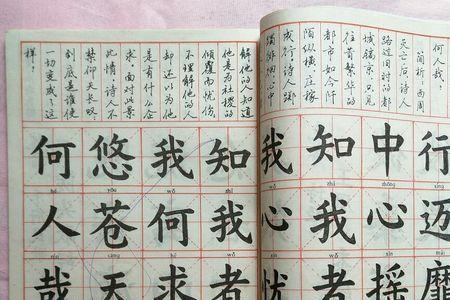 何人哉？
简析：西周
灭亡后，诗人
路过旧时的都
城镐京，只见
往昔繁华的
都市如今阡
陌纵横，庄稼
成行，诗人踯
躅徘徊，心中
行迈靡
中心摇
知我者
我心忧
解他的人知道
他是为社稷的
倾覆而忧伤，
不理解他的人
却还以为他
是有什么企
求。面对此景
此情，诗人不
禁仰天长叹：
到底是谁使
一切变成了这
样？
知我者
我何求
悠苍天
何人哉